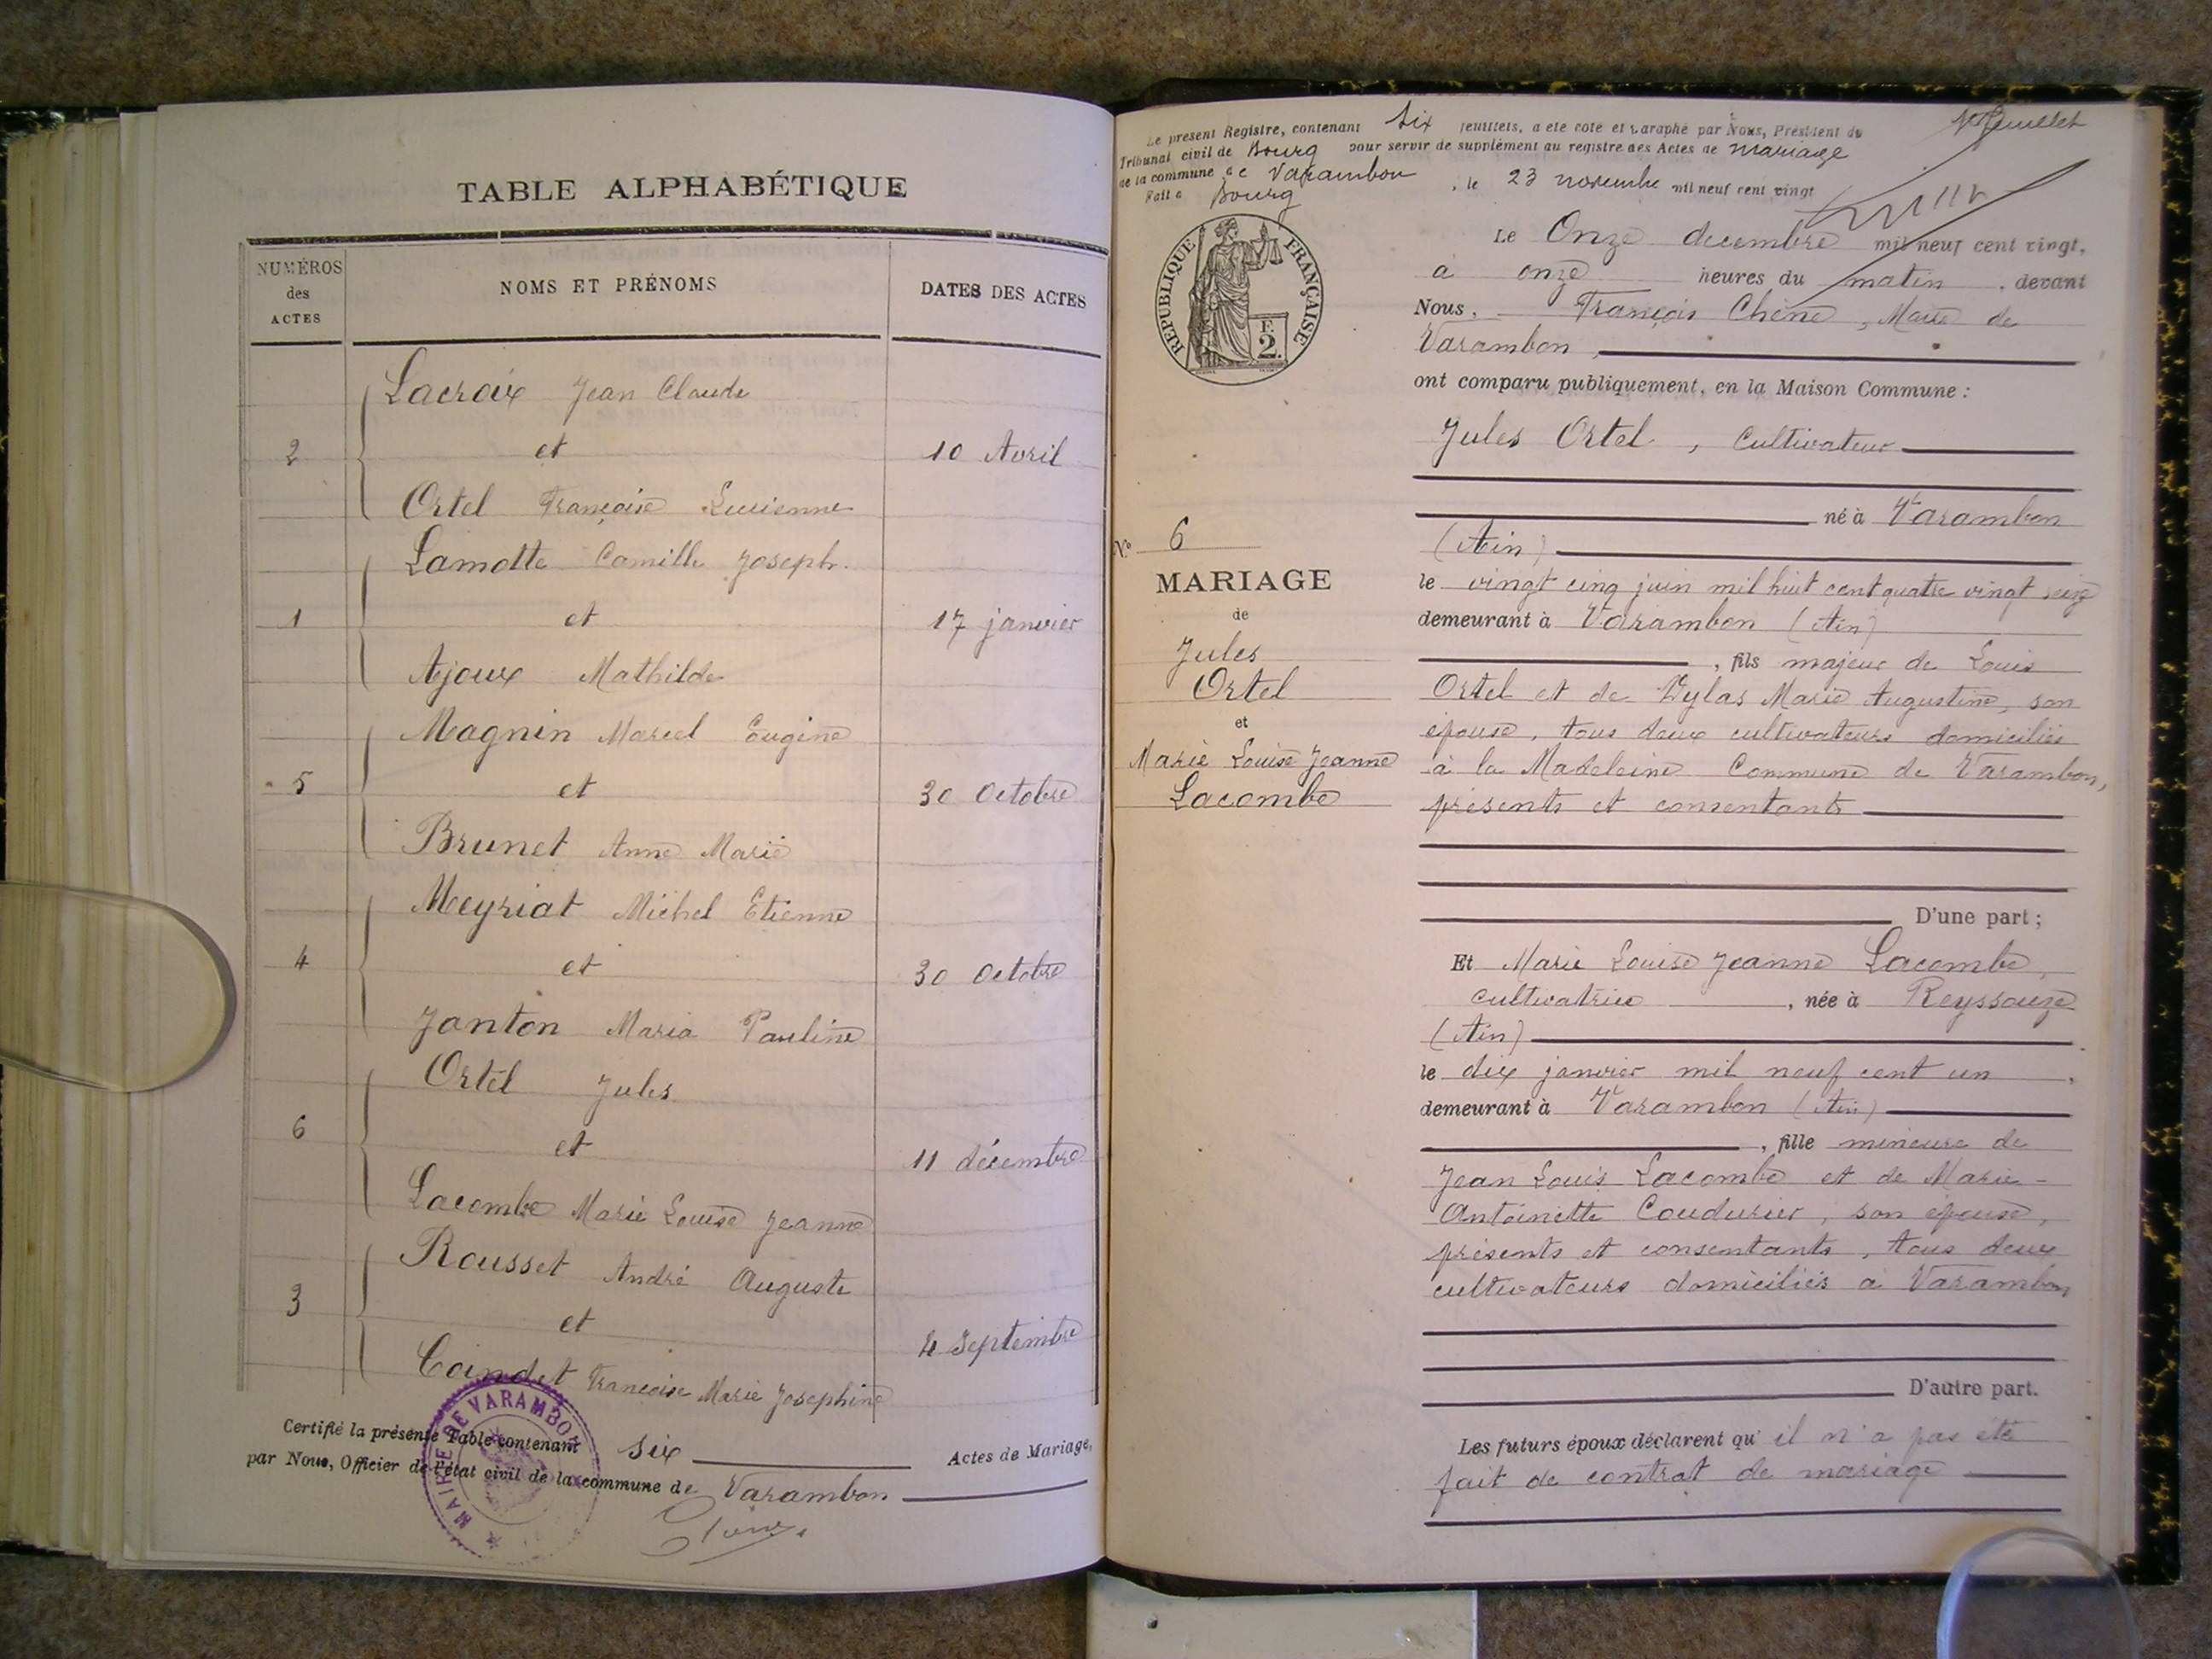 TABLE ALPHABÉTIQUE
NUMÉROS
des
ACTES
NOMS ET PRÉNOMS
DATES DES ACTES
Lacroix Jean Claude
2 et 10 Avril
Ortel Françoise Lucienne
Lamotte Camille Joseph.
1 et 17 janvier
Ajoux Mathilde
Magnin Marcel Eugène
5 et 30 Octobre
Brunet Anne Marie
Meyriat Michel Etienne
4 et 30 Octobre
Janton Maria Pauline
Ortel Jules
6 et 11 décembre
Lacombe Marie Louise Jeanne
Rousset André Auguste
3 et 4 Septembre
Coindet Françoise Marie Josephine
Certifié la présente Table contenant six Actes de Mariage,
par Nous, Officier de l'état civil de la commune de Varambon
MAIRIE DE VARAMBON
Le présent Registre, contenant six feuillets, a été coté et paraphé par Nous, Président du
Tribunal civil de Bourg pour servir de supplément au registre des Actes de mariage
de la commune de Varambon
Fait à Bourg, le 23 novembre mil neuf cent vingt
1er feuillet
RÉPUBLIQUE FRANÇAISE
F.
2.
Le Onze decembre mil neuf cent vingt,
à onze heures du matin, devant
Nous, François Chêne, Maire de
Varambon,
ont comparu publiquement, en la Maison Commune :
Jules Ortel, Cultivateur
né à Varambon
(Ain)
le vingt cinq juin mil huit cent quatre vingt seize
demeurant à Varambon (Ain)
, fils majeur de Louis
Ortel et de Dylas Marie Augustine, son
épouse, tous deux cultivateurs domiciliés
à la Madeleine Commune de Varambon,
présents et consentants
D'une part ;
N° 6
MARIAGE
de
Jules
Ortel
et
Marie Louise Jeanne
Lacombe
Et Marie Louise Jeanne Lacombe,
cultivatrice, née à Reyssouze
(Ain)
le dix janvier mil neuf cent un,
demeurant à Varambon (Ain)
, fille mineure de
Jean Louis Lacombe et de Marie-
Antoinette Coudurier, son épouse,
présents et consentants, tous deux
cultivateurs domiciliés à Varambon
D'autre part.
Les futurs époux déclarent qu'il n'a pas été
fait de contrat de mariage